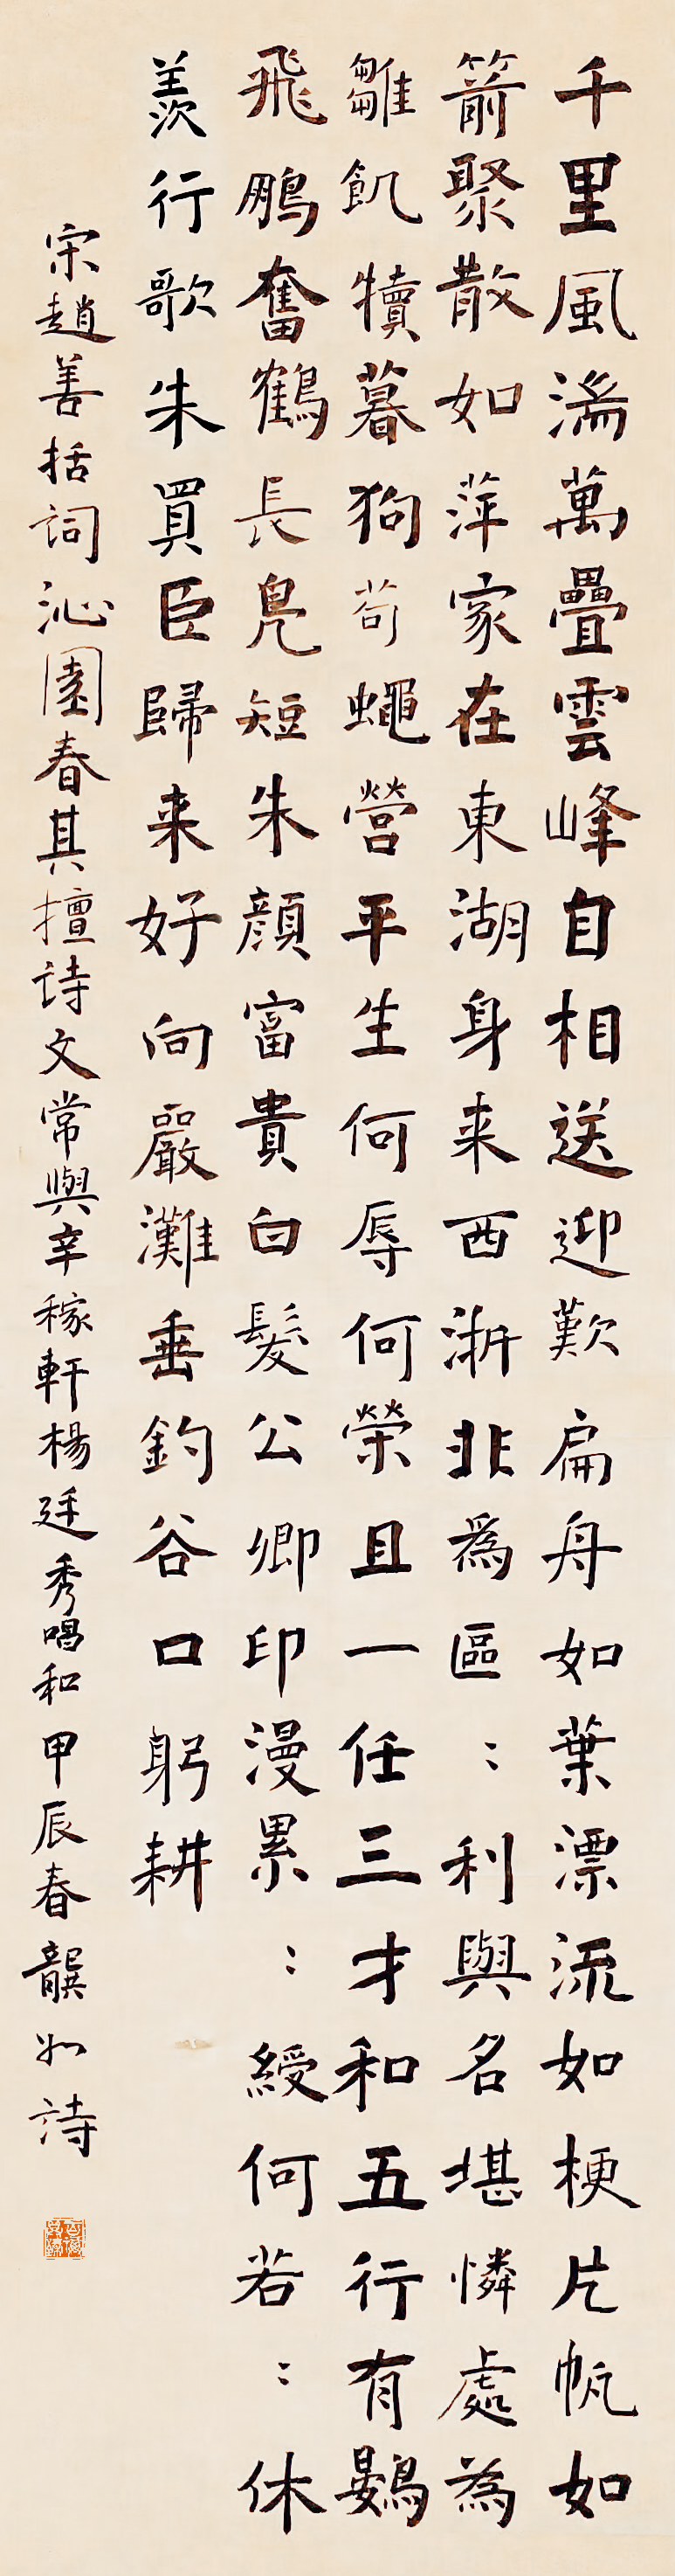 千里風湍萬疊雲峰自相送迎歎扁舟如葉漂流如梗片帆如
箭聚散如萍家在東湖身来西浙非為區:利與名堪憐處為
雛飢犢暮狗苟蠅營平生何辱何榮且一任三才和五行有鷃
飛鵬奮鶴長鳧短朱顏富貴白髮公卿印漫累:綬何若:休
羨行歌朱買臣歸来好向嚴灘垂釣谷口躬耕
宋趙善括詞沁園春其擅詩文常與辛稼軒楊廷秀唱和甲辰春龔如詩